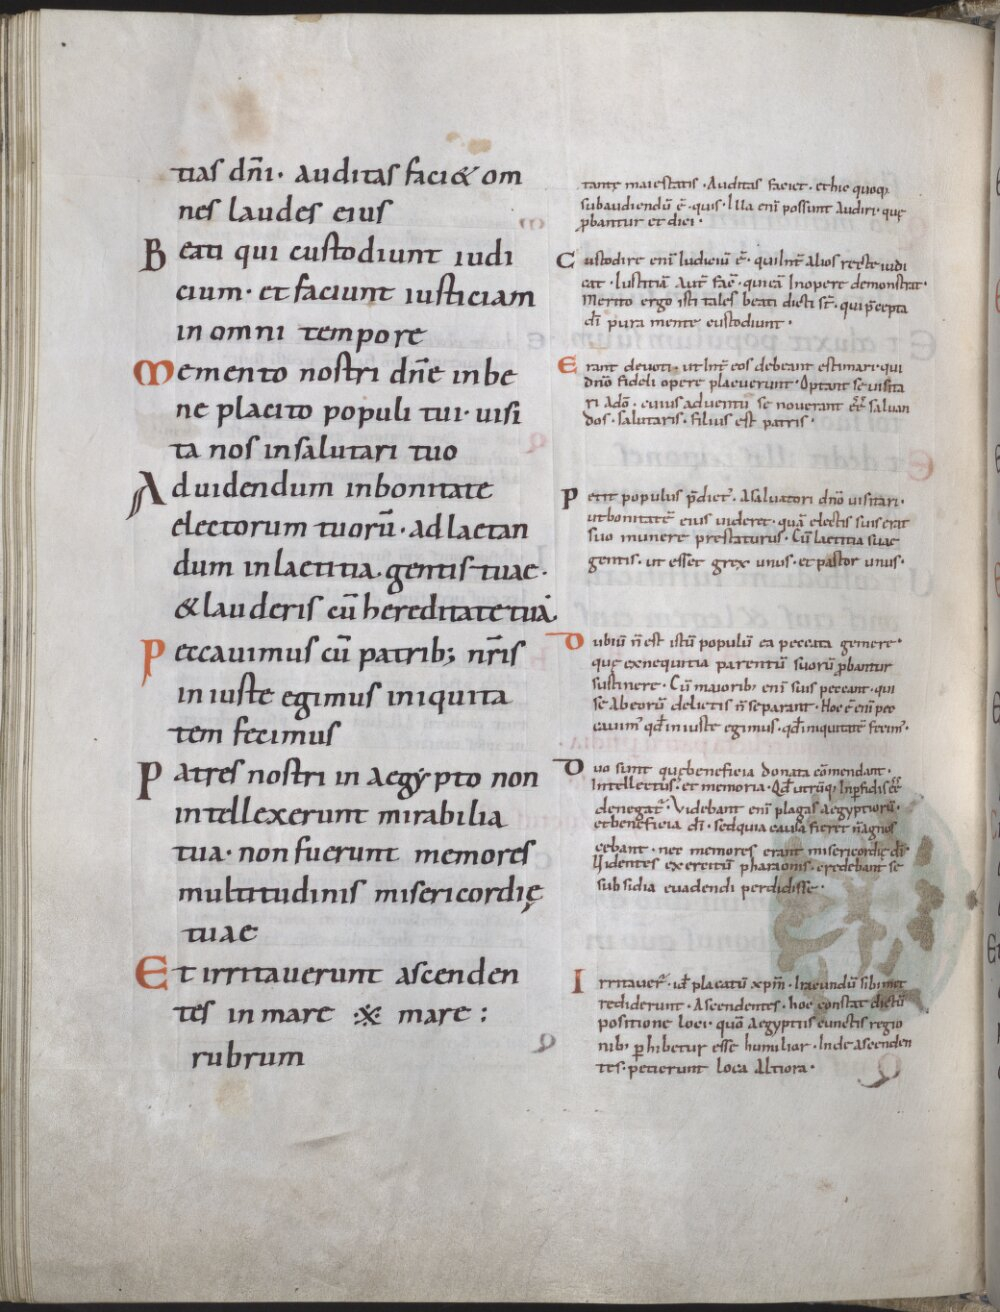 tias dñi· auditas faci& om
nes laudes eius
Beati qui custodiunt iudi
cium· et faciunt iusticiam
in omni tempore
Memento nostri dñe inbe
ne placito populi tui· uisi
ta nos insalutari tuo
Ad uidendum inbonitate
electorum tuorũ· ad laetan
dum inlaetitia gentis tuae·
& lauderis cũ hereditate tuá
Peccauimus cũ patrib; nr̃is
in iuste egimus iniquita
tem fecimus
Patres nostri in aegẏpto non
intellexerunt mirabilia
tua· non fuerunt memores
multitudinis misericordię
tuae
Et irritauerunt ascenden
tes in mare ※ mare :
rubrum
tantę maiestatis · Auditas faciet · et hic quoq,
subaudiendũ ẽ · quis · Illa enī possunt Audiri · quę
ꝓbantur et dici ·
Custodire enī Iudiciũ ẽ · qui int̃ Alios recte iudi
cat · Iustitiã Aut̃ · qui eã Inopere demonstrat ·
Merito ergo isti tales beati dicti st̃ · qui p̃cepta
dī pura mente custodiunt ·
Erant deuoti · ut int̃ eos debeant estimari · qui
dño fideli opere placuerunt · Optant se uisita
ri Adõ · cuius aduentũ se nouerant eẽ saluan
dos · salutaris · filius est patris ·
Petit populus p̃dict᷒ · Asaluatori dño uisitari ·
ut bonitatẽ eius uideret · quã electis suis erat
suo munere prestaturus · Cũ laetitia suae
gentis · ut esset grex unus · et pastor unus ·
Dubiũ ñ est istũ populũ ea peccata gemere ·
quę exnequitia parentũ suorũ ꝓbantur
sustinere · Cũ maiorib; enī suis peccant · qui
se Abeorũ delictis ñ separant · Hoc ẽ enī pec
cauim᷒ qđ iniuste egimus · qđ iniquitatẽ fecim᷒ ·
Duo sunt quę beneficia donata cõmendant ·
Intellectus · et memoria · Qđ utrũq; Inꝑfidis eẽ
denegat᷒ · Videbant enī plagas Aegyptiorũ ·
et beneficia dī · sed quia causa fieret ñ agnos
cebant · nec memores erant misericordię dī
Videntes exercitũ pharaonis · credebant se
subsidia euadendi perdidisse ·
Irritauer̃ · id̃ placatũ xpm̃ · Iracundũ sibimet
reddiderunt · Ascendentes · hoc constat dictũ
positione loci · quõ Aegyptiis cunctis regio
nib; ꝑhibetur esse humilior · Inde ascenden
tes · petierunt loca Altiora ·